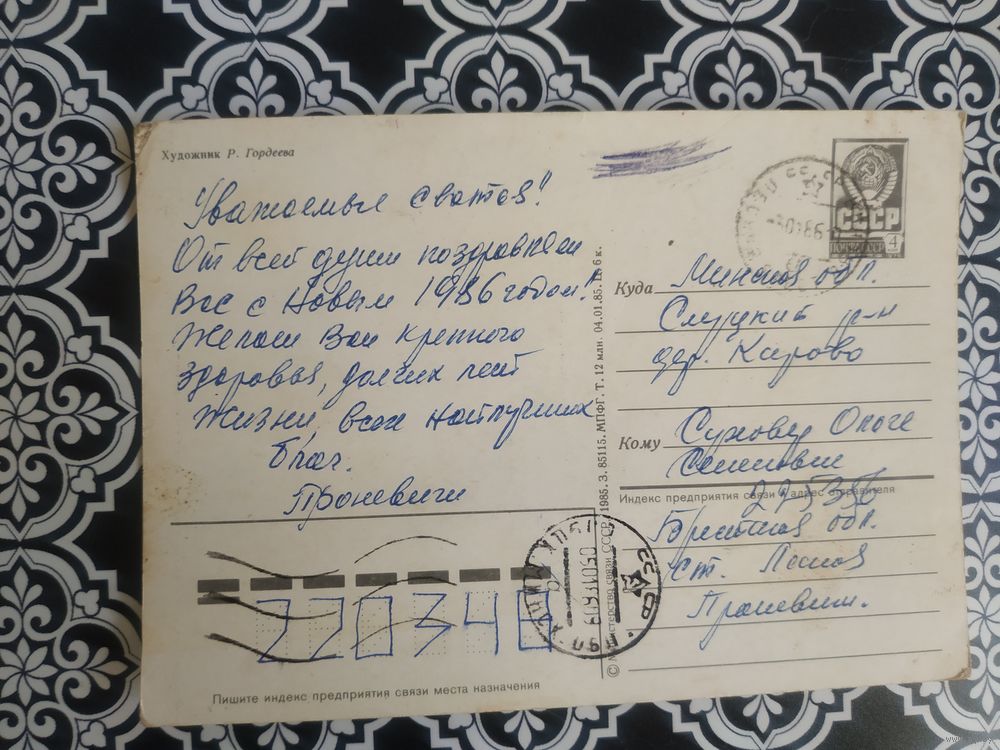 Художник Р. Гордеева
Уважаемые сватов!
От всей души поздравляем
Вас с Новым 1986 годом!
Желаем Вам крепкого
здоровья, долгих лет
жизни, всех наилучших
благ.
Проневичи
СССР
ПОЧТА СССР
4
Куда Минская обл.
Слуцкий р-н
дер. Кирово
Кому Суховер Ольге
Семеновне
Индекс предприятия связи и адрес отправителя
225356
Брестская обл.
ст. Лесная
Проневич.
© Министерство связи СССР, 1985. З. 85115. МПФГ. Т. 12 млн. 04.01.85. Ц. 6 к.
220340
Пишите индекс предприятия связи места назначения